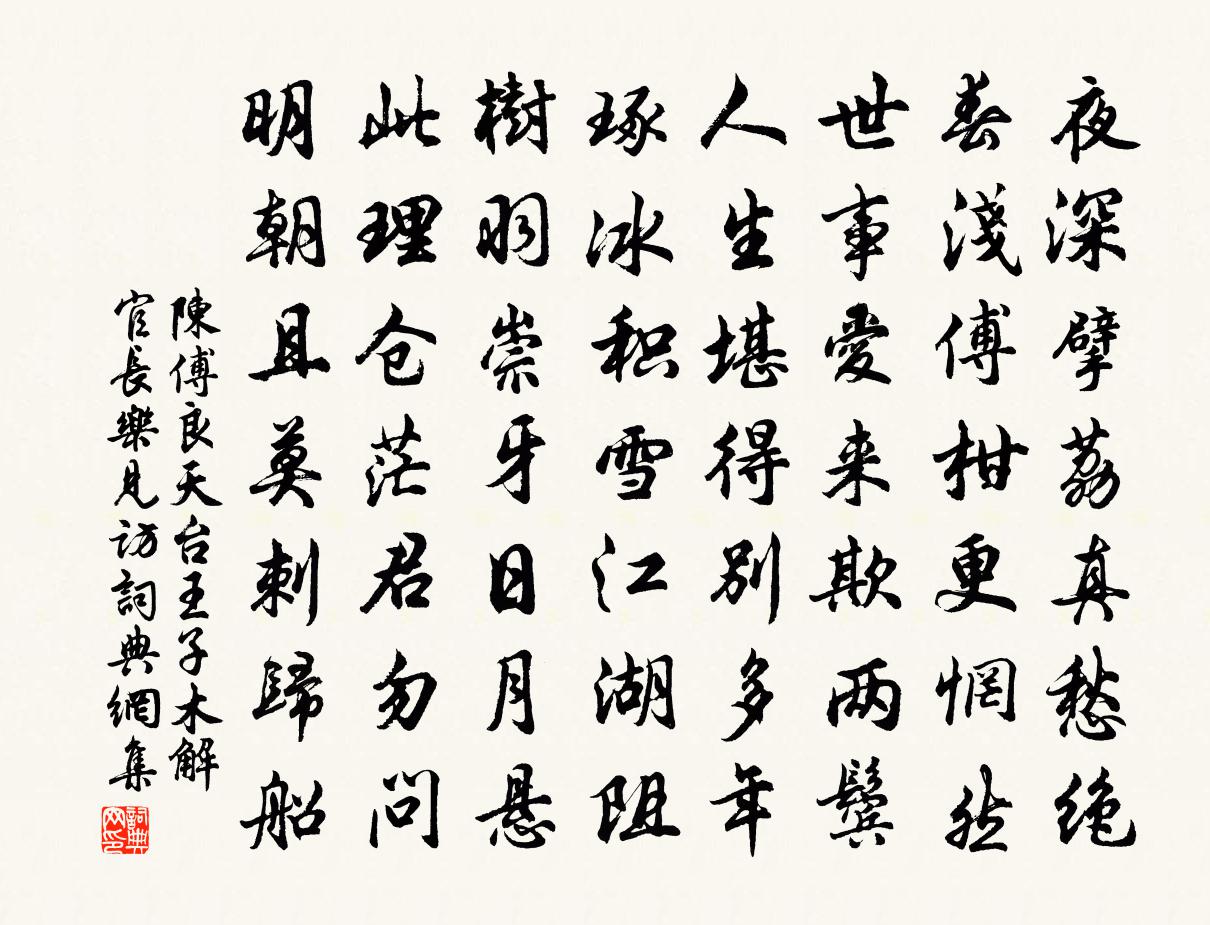 夜深擘荔真愁绝
春淺傅柑更惘然
世事愛来欺两鬓
人生堪得别多年
琢冰积雪江湖阻
樹羽崇牙日月悬
此理仓茫君勿问
明朝且莫刺歸船
陳傅良天台王子木解
官長樂見访詞典網集
詞典网印